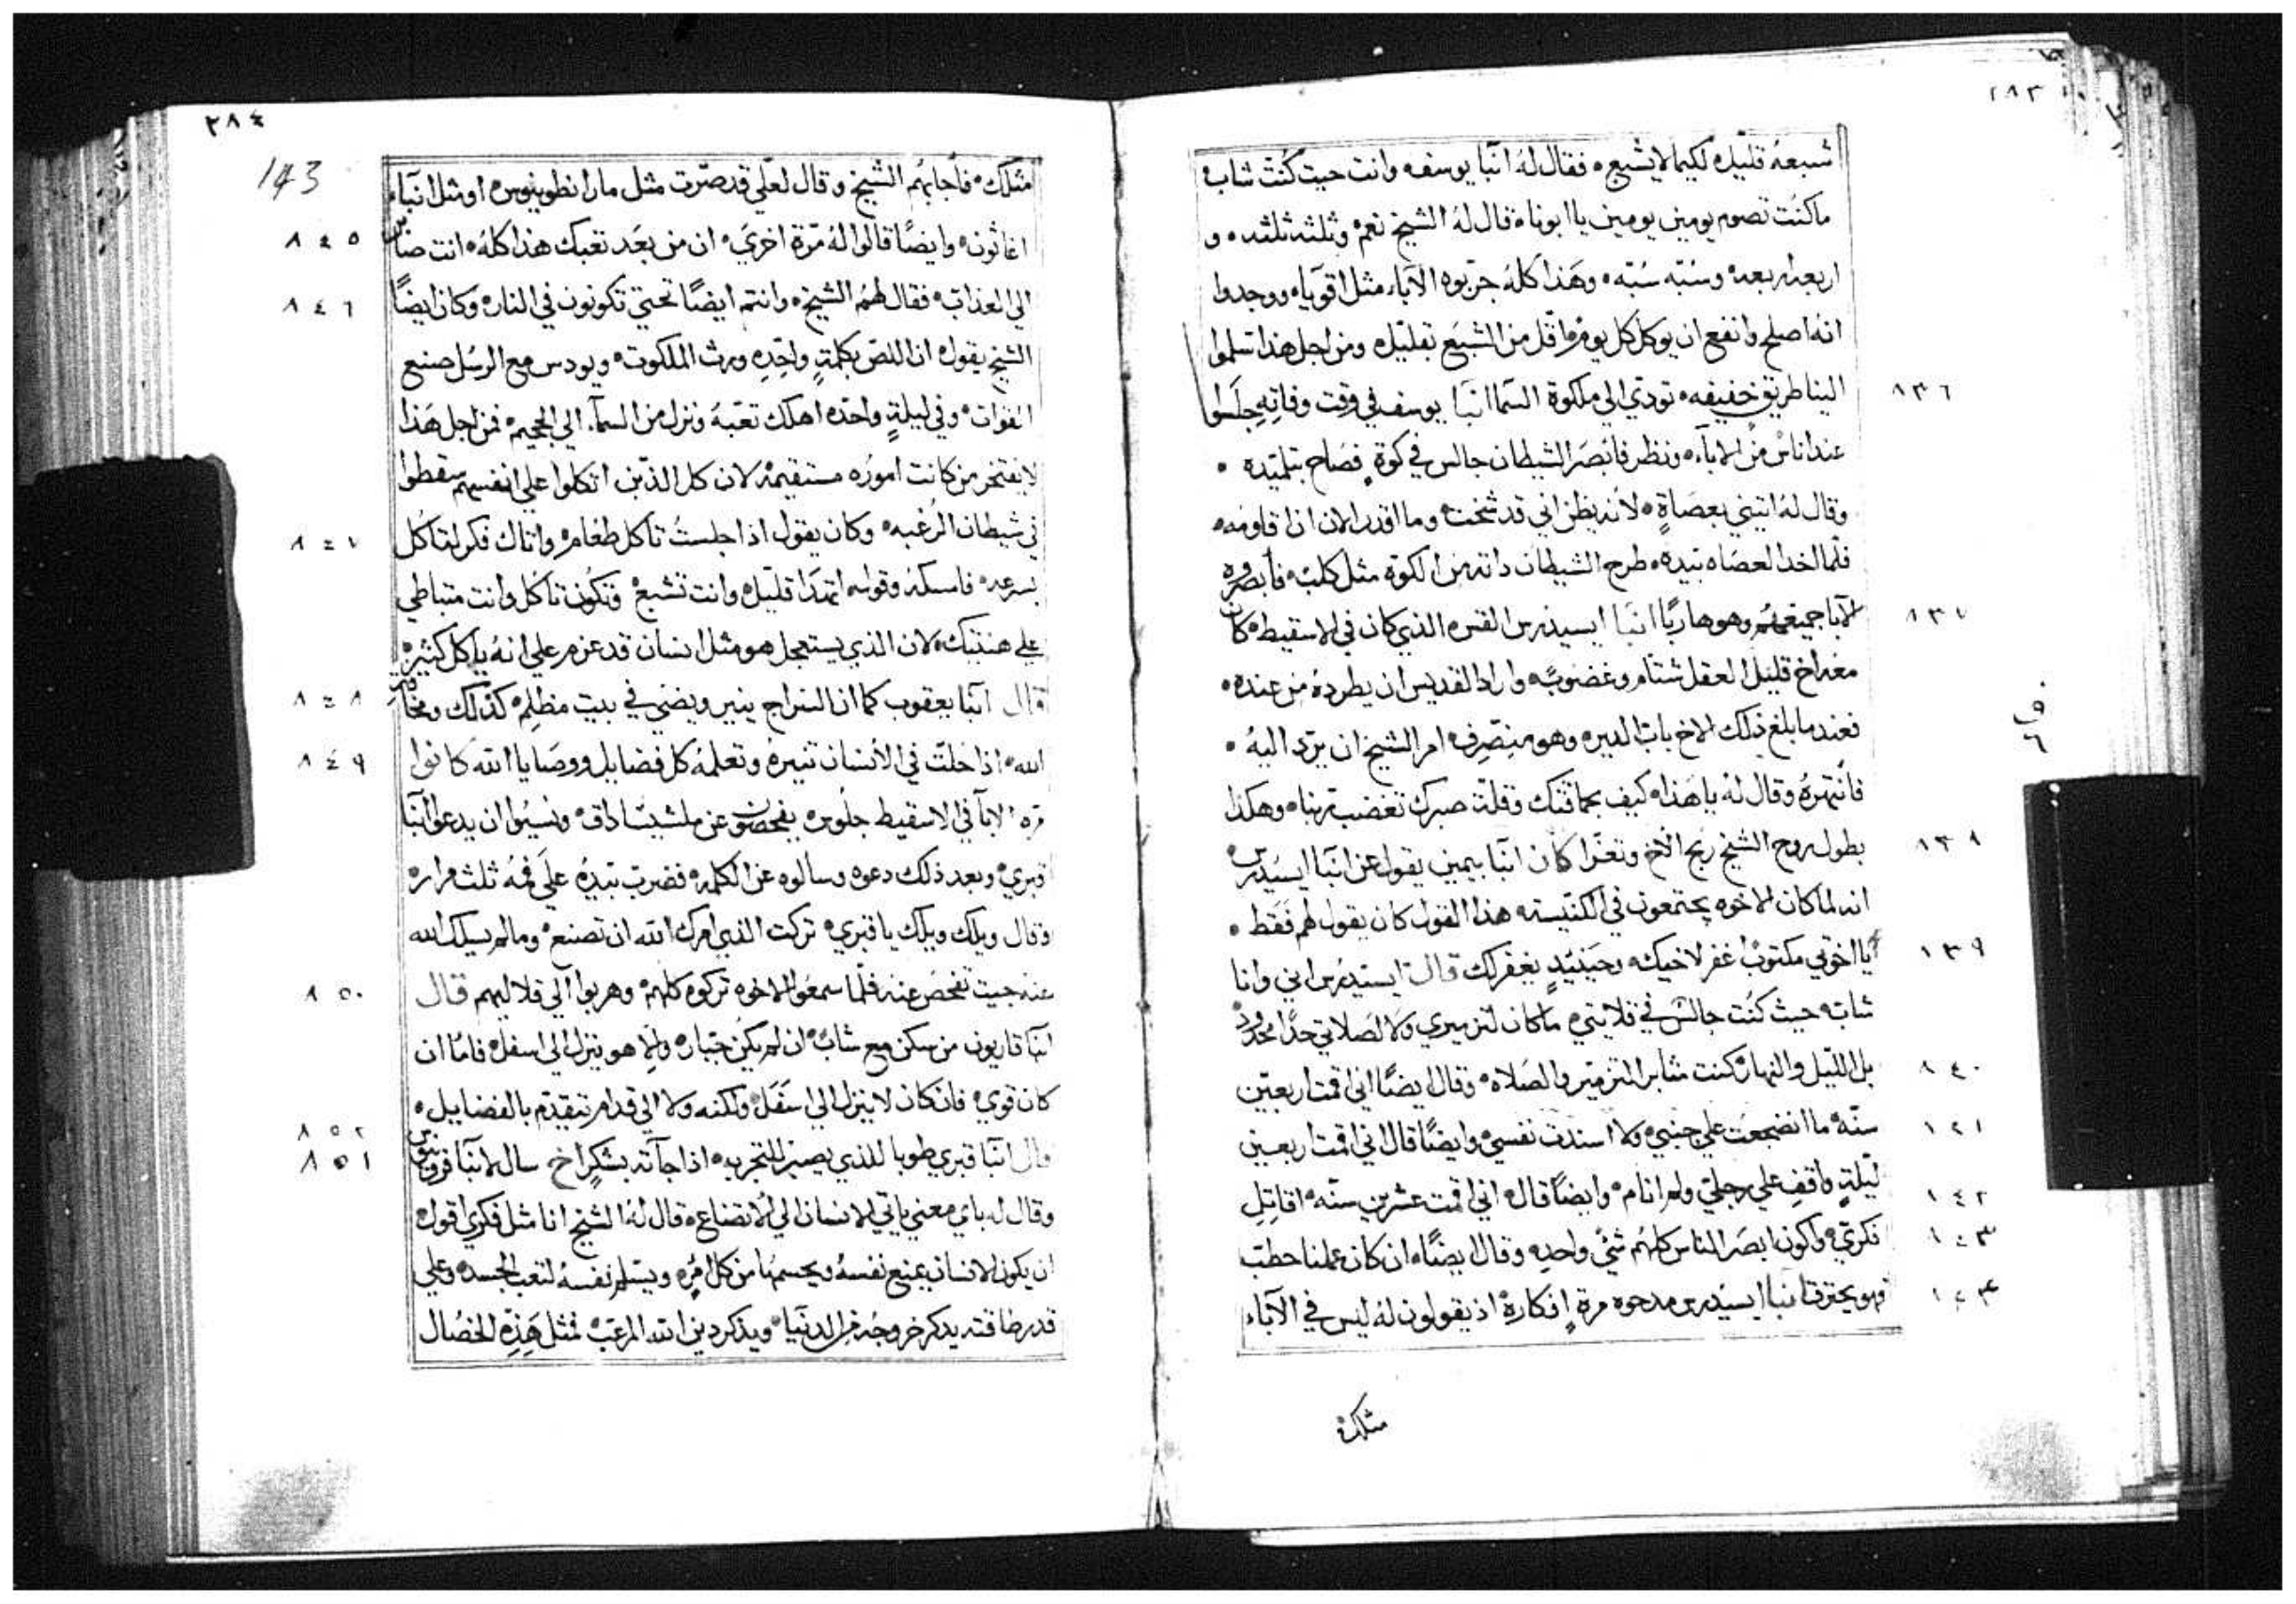 ٢٨٣
شبعهُ قليل لكيما لا يشبع ، فقال لهُ انبا يوسف وانت حيت كُنت شاب
ما كنُت تصوم يومين يومين يا ابونا ، قال لهُ الشيخ نعم وثلثه ثلثه ، و
اربعه اربعه وستّه ستّه ، وهذا كلهُ جرّبوه الآباء مثل اقويا ، ووجدوا
انهُ اصلح وانفع ان يوكل كل يوم ما قل من الشبع بقليل ومن اجل هذا سلموا
الينا طريق خفيفه ، تودي الي ملكوة السما انبا يوسف في وقت وفاته جلسوا
١٣٦
عند اناس من الاباء ونظر فابصر الشيطان جالس في كوة فصاح بتلميده ،
وقال لهُ اتيني بعصاةٍ ، لانه يظن اني قد شخت وما اقدر الان انا قاومه ،
فلما اخد العصاه بيده ، طرح الشيطان داته من الكوة مثل كلب ، فابصروه
الابا جميعهُم وهو هاربًا انبا ايسيدرس القس الذي كان في الاسقيط ، كان
١٣٧
معه اخ قليل العقل شتام وغضوبً ، واراد القديس ان يطرده من عنده ،
فعند ما بلغ ذلك الاخ باب الدير وهو منصرف امر الشيخ ان يرد اليهُ ،
فانتهرهُ وقال لهُ يا هذا ، كيف بحماقتك وقلة صبرك تغضب ربنا ، وهكذا
بطول روح الشيخ ربح الاخ وتعزا كان انبا بيمين يقول عن انبا ايسيدرس
١٣٨
انه لما كان الاخوه يجتمعون في الكنيسه هذا القول كان يقول لهم فقط ،
يا اخوتي مكتوبٌ اغفر لاخيك وحينيدٍ يغفر لك قال ايسيدرس اني وانا
١٣٩
شاب حيث كُنت جالس في قلايتي ما كان لتزميري ولا لصلاتي حدًا محدود
بل الليل والنهار كنت مثابر التزمير والصلاه ، وقال ايضًا اني اقمت اربعين
١٤٠
سنه ما انضجعت علي جنبي ولا اسندت نفسي ، وايضًا قال اني اقمت اربعين
١٤١
ليلةٍ واقفٍ علي رجلي ولم انام ، وايضًا قال اني اقمت عشرين سنه ، اقاتل
١٤٢
فكري ، واكون ابصر الناس كلهُم شيٍ واحدٍ وقال ايضًا ، ان كان عملنا حطب
١٤٣
فهو يحترق انبا ايسيدرس مدحوه مرةٍ افكارهُ اذ يقولون لهُ ليس في الآباء
مثلك
٢٨٤
143
مثلك ، فاجابهُم الشيخ وقال لعلي قد صرت مثل مار انطونيوس ، او مثل انباء
اغاثون ، وايضًا قالوا لهُ مرّة اخري ، ان من بعد تعبك هذا كلهُ ، انت صاير
١٤٥
الي العذاب ، فقال لهُم الشيخ ، وانتم ايضًا تحتي تكونون في النار ، وكان ايضًا
١٤٦
الشيخ يقول ان اللص بكلمةٍ واحده ورث الملكوت ، ويودس مع الرسل صنع
القوات ، وفي ليلةٍ واحده اهلك تعبهُ ونزل من السماء الي الجحيم ، فمن اجل هذا
لا يفتخر من كانت اموره مستقيمه لان كل الذين اتكلوا علي انفسهم سقطوا
في شيطان الرغبه ، وكان يقول اذا جلستُ تاكل طعام ، واتاك فكر لتاكُل
١٤٧
بسرعه ، فامسكه وقول له اتهدا قليل وانت تشبع وتكُون تاكل وانت متباطي
علي هنتيك ، لان الذي يستعجل هو مثل انسان قد عزم علي انهُ ياكل كثير
قال انبا يعقوب كما ان السراج ينير ويضي في بيت مظلم كذلك ومخافة
١٤٨
الله ، اذا حلت في الانسان تنيرهُ وتعلمهُ كل فضايل ووصايا الله كانوا
١٤٩
مره الابا في الاسقيط جلوس يفحصون عن ملشيساداق ، ونسُيوا ان يدعوا انبا
قبري ، وبعد ذلك دعوه وسالوه عن الكلمه فضرب بيدهُ علي فمهُ ثلث مرار ،
وقال ويلك ويلك يا قبري ، تركت الذي امرك الله ان تصنع ، وما لم يسيلك الله
عنه جيت تفحص عنه فلما سمعوا الاخوه تركوه كلهم ، وهربوا الي قلاليهم قال
١٥٠
انبا قاريون من سكن مع شاب ، ان لم يكن جبار ، والا هو ينزل الي اسفل ، فاما ان
كان قوي ، فان كان لا ينزل الي اسفل ولكنه ولا الي قدام يتقدم بالفضايل ،
١٥٢
قال انبا قبري طوبا للذي يصبر للتجربه اذا جاته بشكرٍ اخ سال لانبا قرونيوس
١٥١
وقال له باي معني ياتي الانسان الي الاتضاع ، قال لهُ الشيخ انا مثل فكري اقول
ان يكون الانسان يمنع نفسهُ ويحسمها من كل امر ، ويسلم نفسهُ لتعب الجسد ، وعلي
قدر طاقته يدكر خروجهُ من الدنيا ، ويذكر دين الله المرعب ، فمثل هذه الخصال